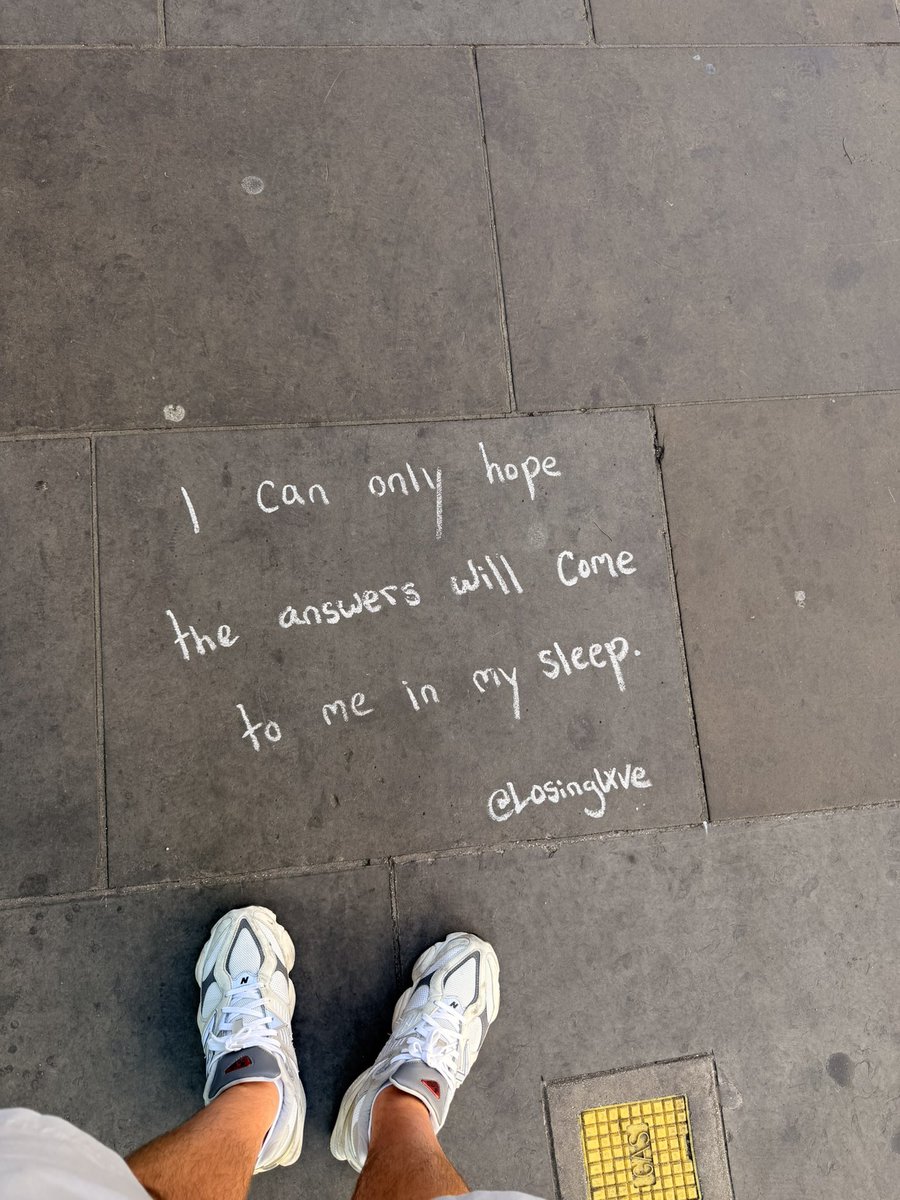 I can only hope
the answers will come
to me in my sleep.
@Losinglxve
N
N
GAS